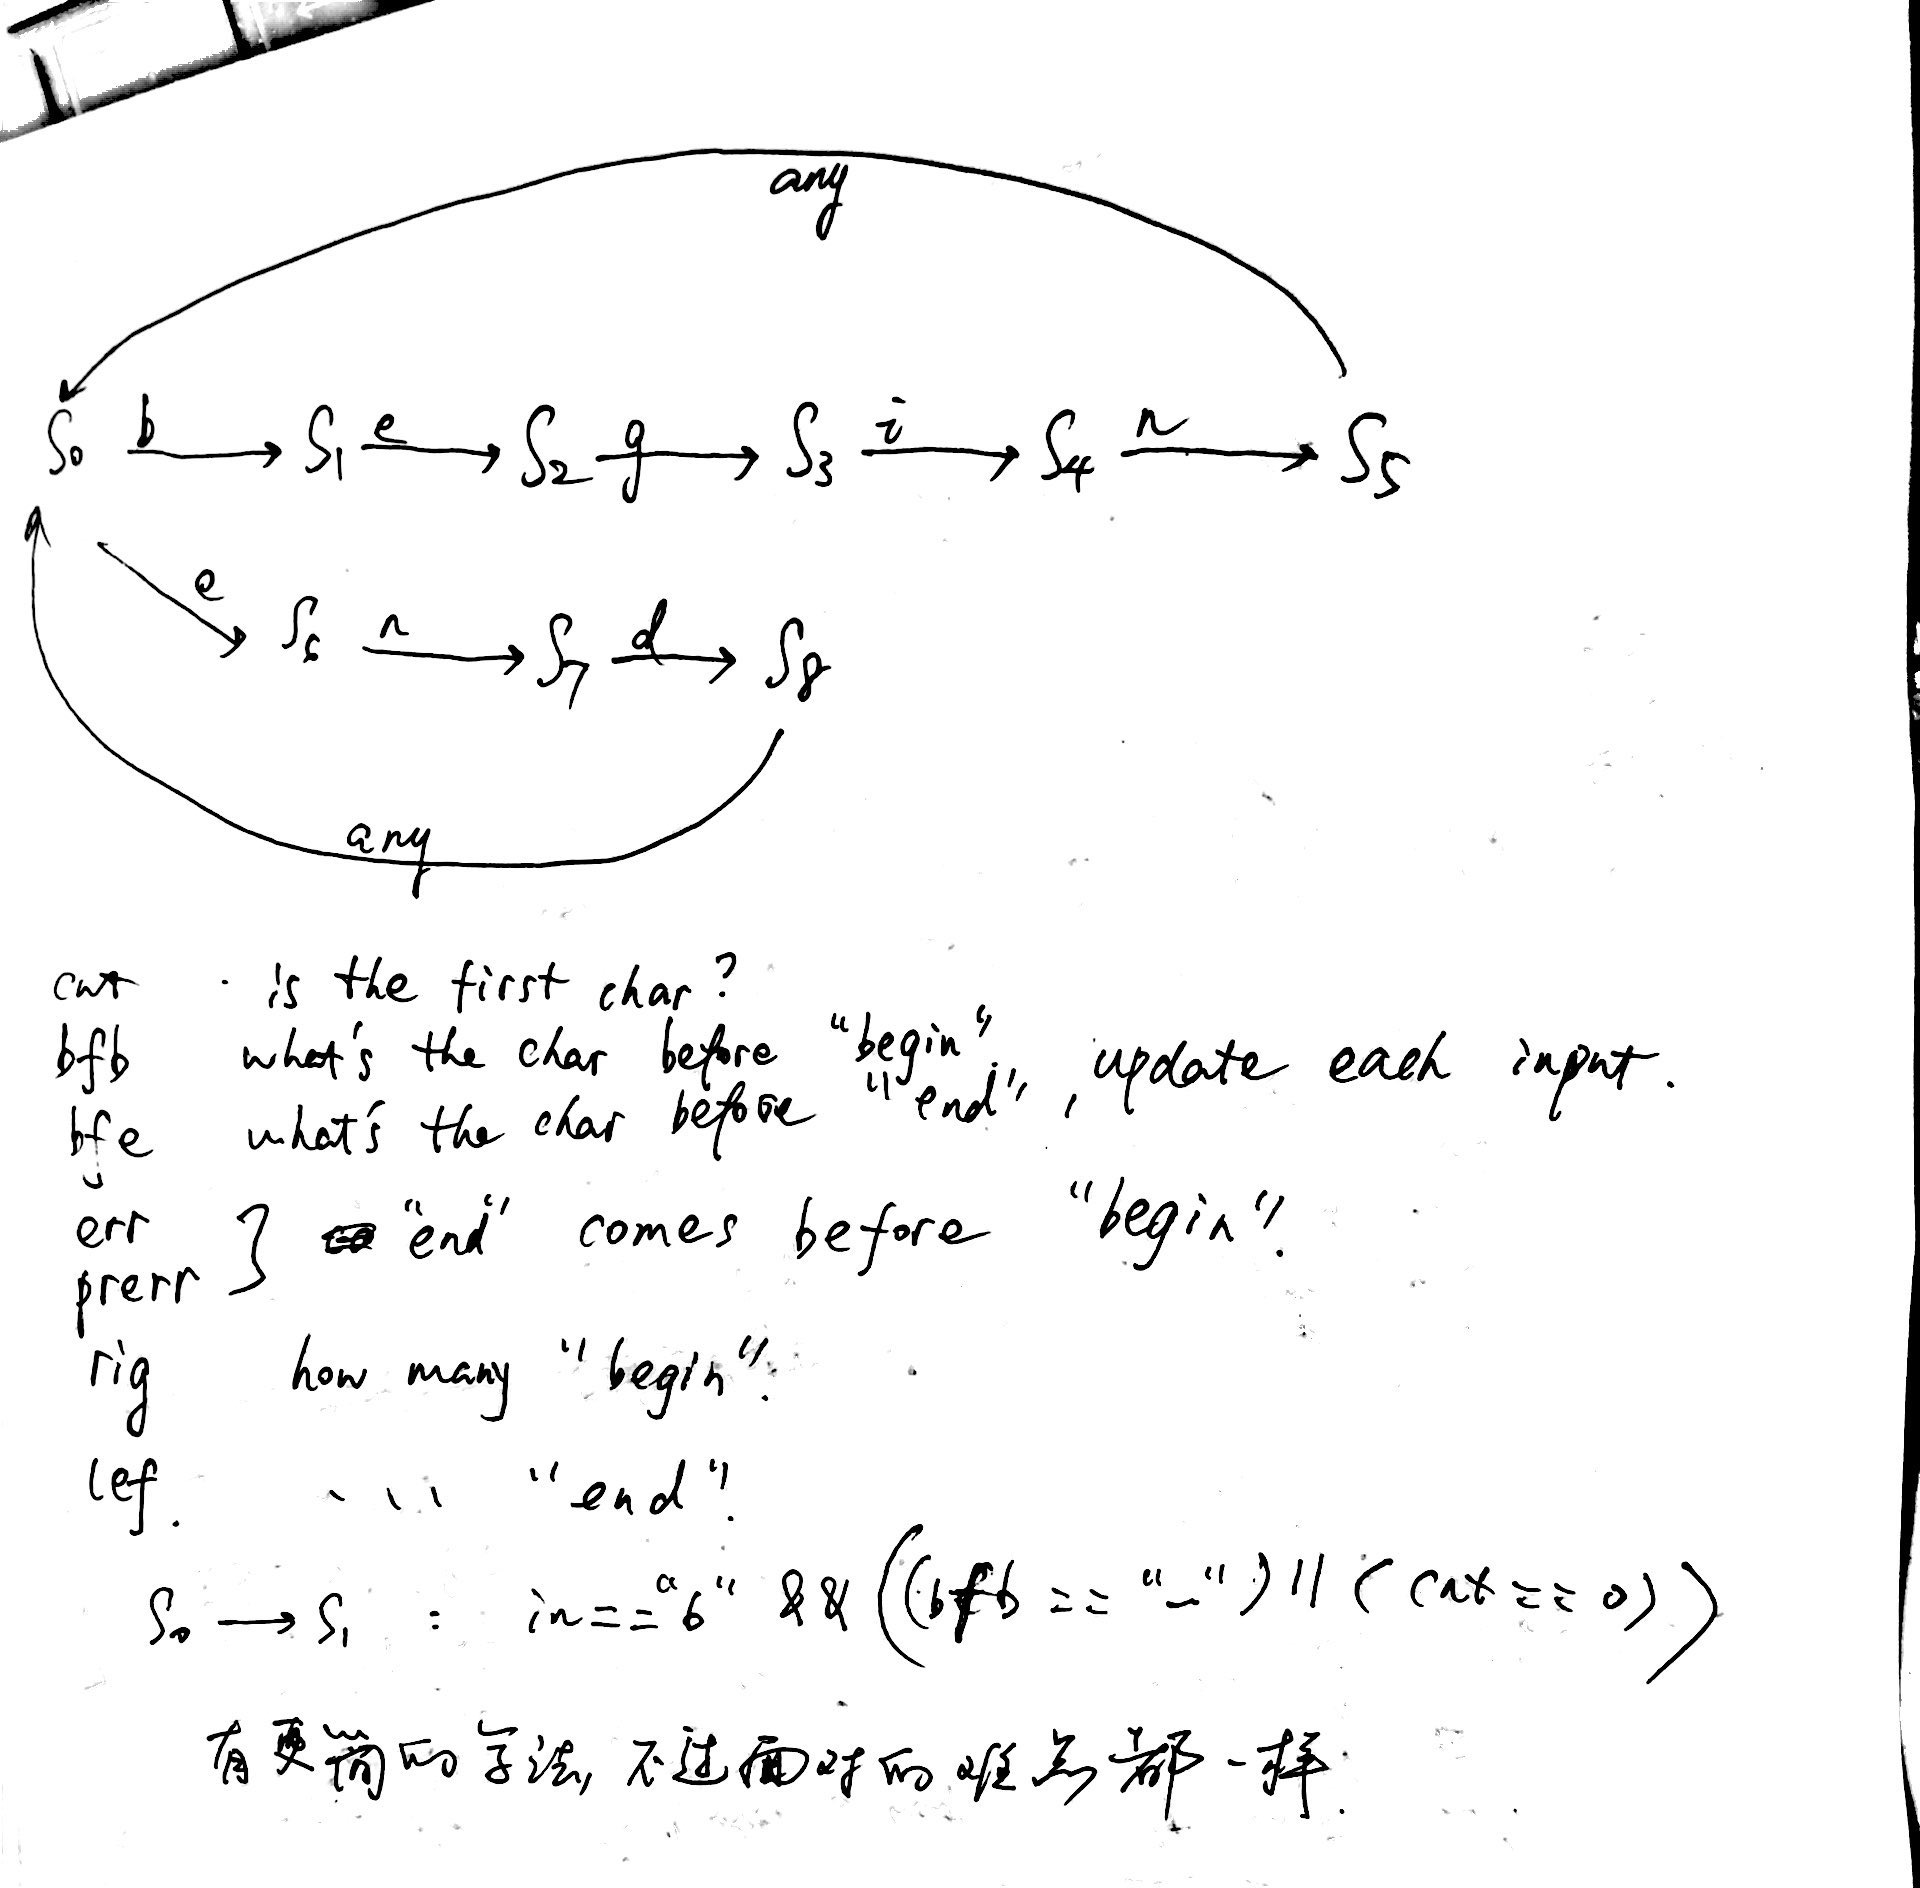 any
S0 b S1 e S2 g S3 i S4 n S5
e S6 n S7 d S8
any
cnt is the first char?
bfb what's the char before "begin".
bfe what's the char before "end", update each input.
err
prerr } "end" comes before "begin".
rig how many "begin".
lef. . . . "end".
S0 → S1 : in=="b" && ((bfb == "_") || (cnt == 0))
有更简的写法, 不过面对的难点都一样.